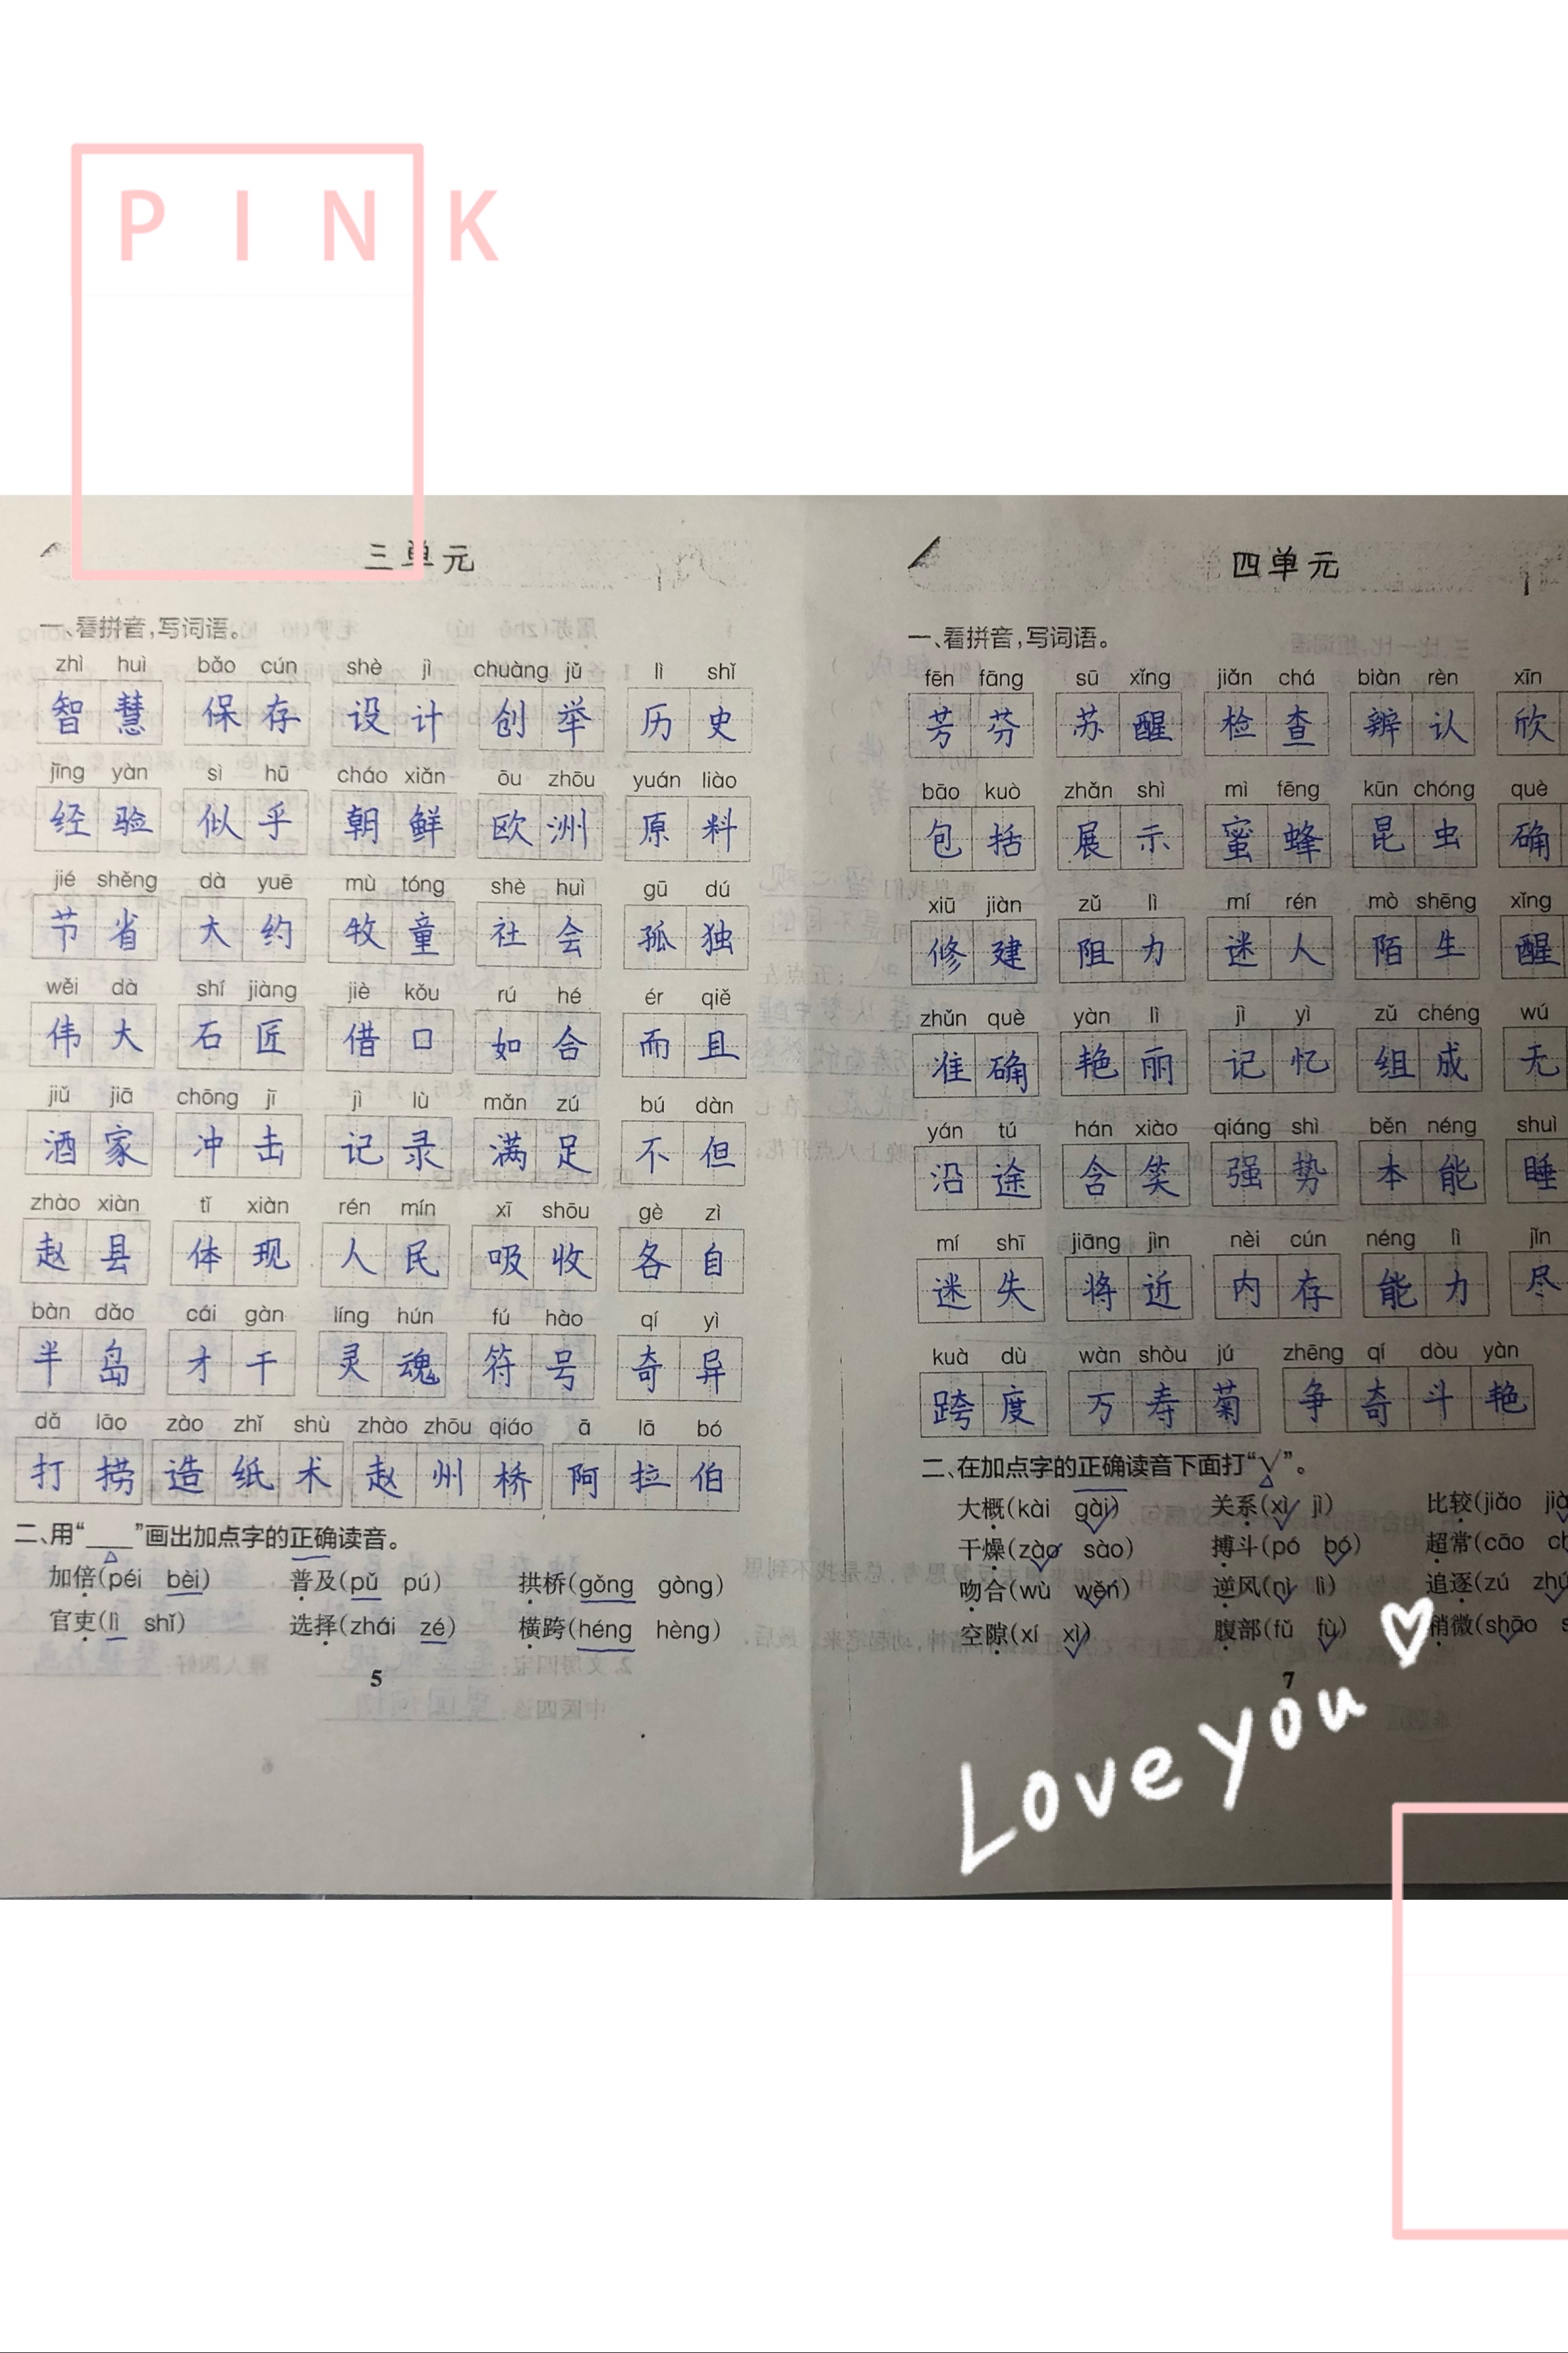 PINK
三单元
一、看拼音,写词语。
zhì huì bǎo cún shè jì chuàng jǔ lì shǐ
智慧 保存 设计 创举 历史
jīng yàn sì hū cháo xiǎn ōu zhōu yuán liào
经验 似乎 朝鲜 欧洲 原料
jié shěng dà yuē mù tóng shè huì gū dú
节省 大约 牧童 社会 孤独
wěi dà shí jiàng jiè kǒu rú hé ér qiě
伟大 石匠 借口 如合 而且
jiǔ jiā chōng jī jì lù mǎn zú bú dàn
酒家 冲击 记录 满足 不但
zhào xiàn tǐ xiàn rén mín xī shōu gè zì
赵县 体现 人民 吸收 各自
bàn dǎo cái gàn líng hún fú hào qí yì
半岛 才干 灵魂 符号 奇异
dǎ lāo zào zhǐ shù zhào zhōu qiáo ā lā bó
打捞 造纸术 赵州桥 阿拉伯
二、用“____”画出加点字的正确读音。
加倍(péi bèi) 普及(pǔ pú) 拱桥(gǒng gòng)
官吏(lì shǐ) 选择(zhái zé) 横跨(héng hèng)
5
四单元
一、看拼音,写词语。
fēn fāng sū xǐng jiǎn chá biàn rèn xīn
芳芬 苏醒 检查 辨认 欣
bāo kuò zhǎn shì mì fēng kūn chóng què
包括 展示 蜜蜂 昆虫 确
xiū jiàn zǔ lì mí rén mò shēng xǐng
修建 阻力 迷人 陌生 醒
zhǔn què yàn lì jì yì zǔ chéng wú
准确 艳丽 记忆 组成 无
yán tú hán xiào qiáng shì běn néng shuì
沿途 含笑 强势 本能 睡
mí shī jiāng jìn nèi cún néng lì jǐn
迷失 将近 内存 能力 尽
kuà dù wàn shòu jú zhēng qí dòu yàn
跨度 万寿菊 争奇斗艳
二、在加点字的正确读音下面打“√”。
大概(kài gài) 关系(xì jì) 比较(jiǎo
干燥(zào sào) 搏斗(pó bó) 超常(cāo
吻合(wù wěn) 逆风(nì lì) 追逐(zú
空隙(xí xì) 腹部(fǔ fù) 稍微(shāo
7
Love you